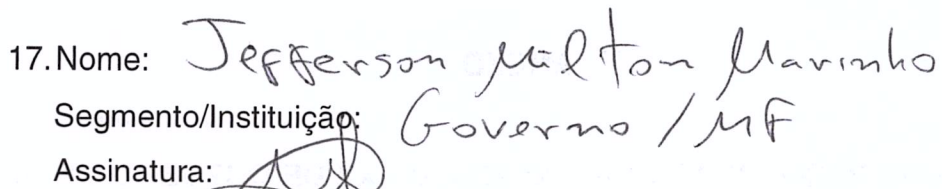 17. Nome: Jefferson Milton Marinho
Segmento/Instituição: Governo / MF
Assinatura: